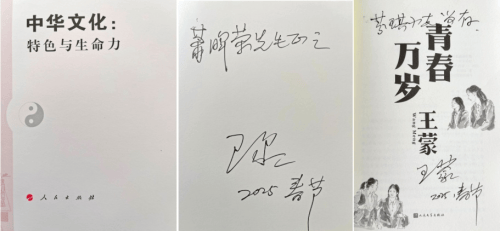 中华文化:
特色与生命力
人民出版社
萧晔荣先生正之
王蒙
2025 春节
存
青春
万岁
王蒙
Wang Meng
王蒙
2025 春节
人民文学出版社